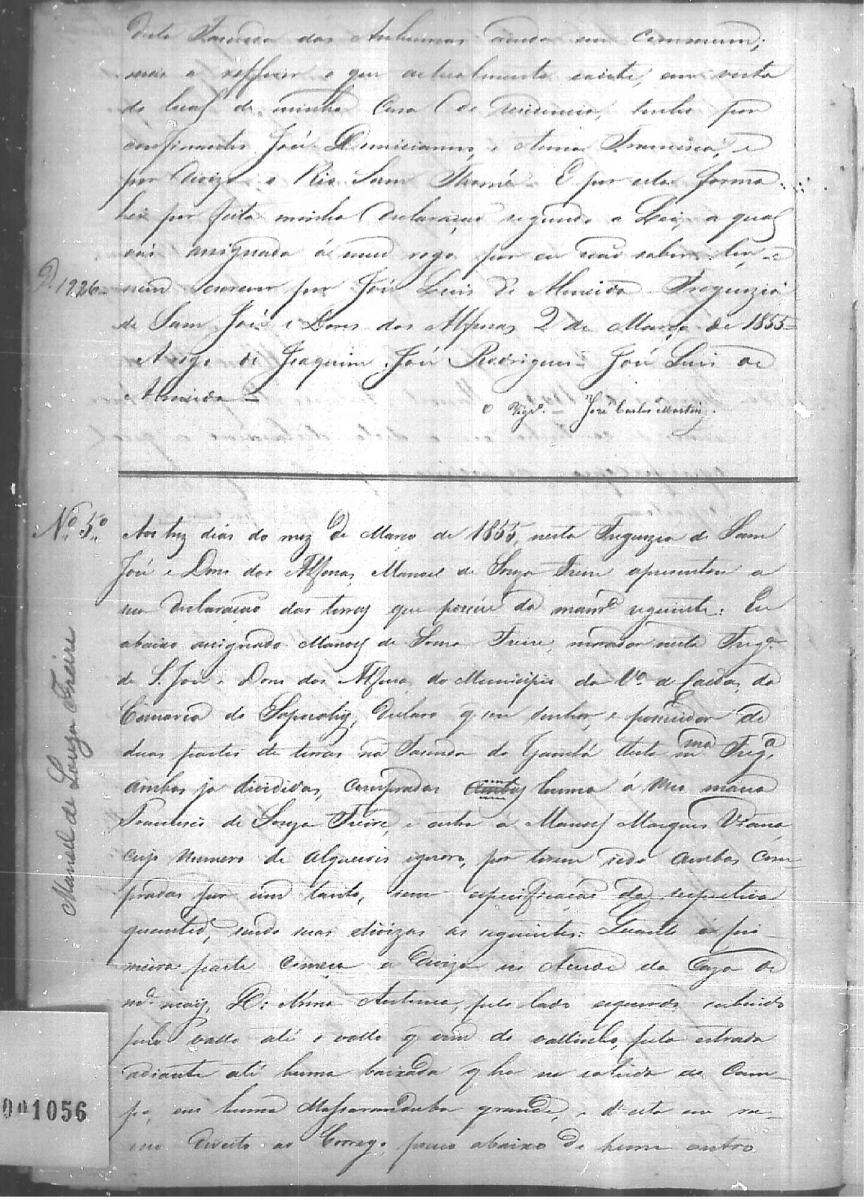 desta Fazenda das Anhumas ainda em commum,
mas a refferir o que actualmente existe, em vista
do local de minha Casa de residencia, tenho por
confinantes José Demiciano, e Anna Francisca, e
por diviza o Rio Sam Thomé. E por esta forma
hei por feita minha declaração segundo a Lei, a qual
vai assignada á meu rogo por eu não saber ler, e
nem screver por José Luis de Almeida. Freguezia
de Sam José e Dores dos Alfenas 2 de Março de 1855
Arogo de Joaquim José Rodrigues José Luis de
Almeida
P. 1926
o Vigr.º José Carlos Martins
Nº 5º
Manoel de Souza Freire
Aos trez dias do mez de Março de 1855, nesta Freguezia de Sam
José e Dores dos Alfenas, Manoel de Souza Freire apresentou a
sua declaração das terras que possue da manrª seguinte: Eu
abaixo assignado Manoel de Souza Freire, morador nesta Fregª
de S. José e Dores dos Alfenas, do Municipio da Vª de Caldas, da
Comarca do Sapucahy, declaro q sou senhor, e possuidor de
duas partes de terras na Fasenda do Gambá desta mma Fregª,
ambas ja divididas, compradas huma á meu mano
Francisco de Souza Freire, e outra á Manoel Marques Viana,
cujo numero de alqueires ignoro, por terem sido ambas com-
pradas por hum tanto, sem especificação da respectiva
quantidº, sendo suas divizas as seguintes: Quanto á pri-
meira parte começa a diviza no Acude da Caza de
D: Anna Antonia, pelo lado esquerdo subindo
pelo vallo até o vallo q vem do vallinho, pela estrada
adiante até huma baixada q ha na sahida do Cam-
po, em huma Massaranduba grande, e d'esta em ru-
mo direito ao Corrego, pouco abaixo de hum outro
001056